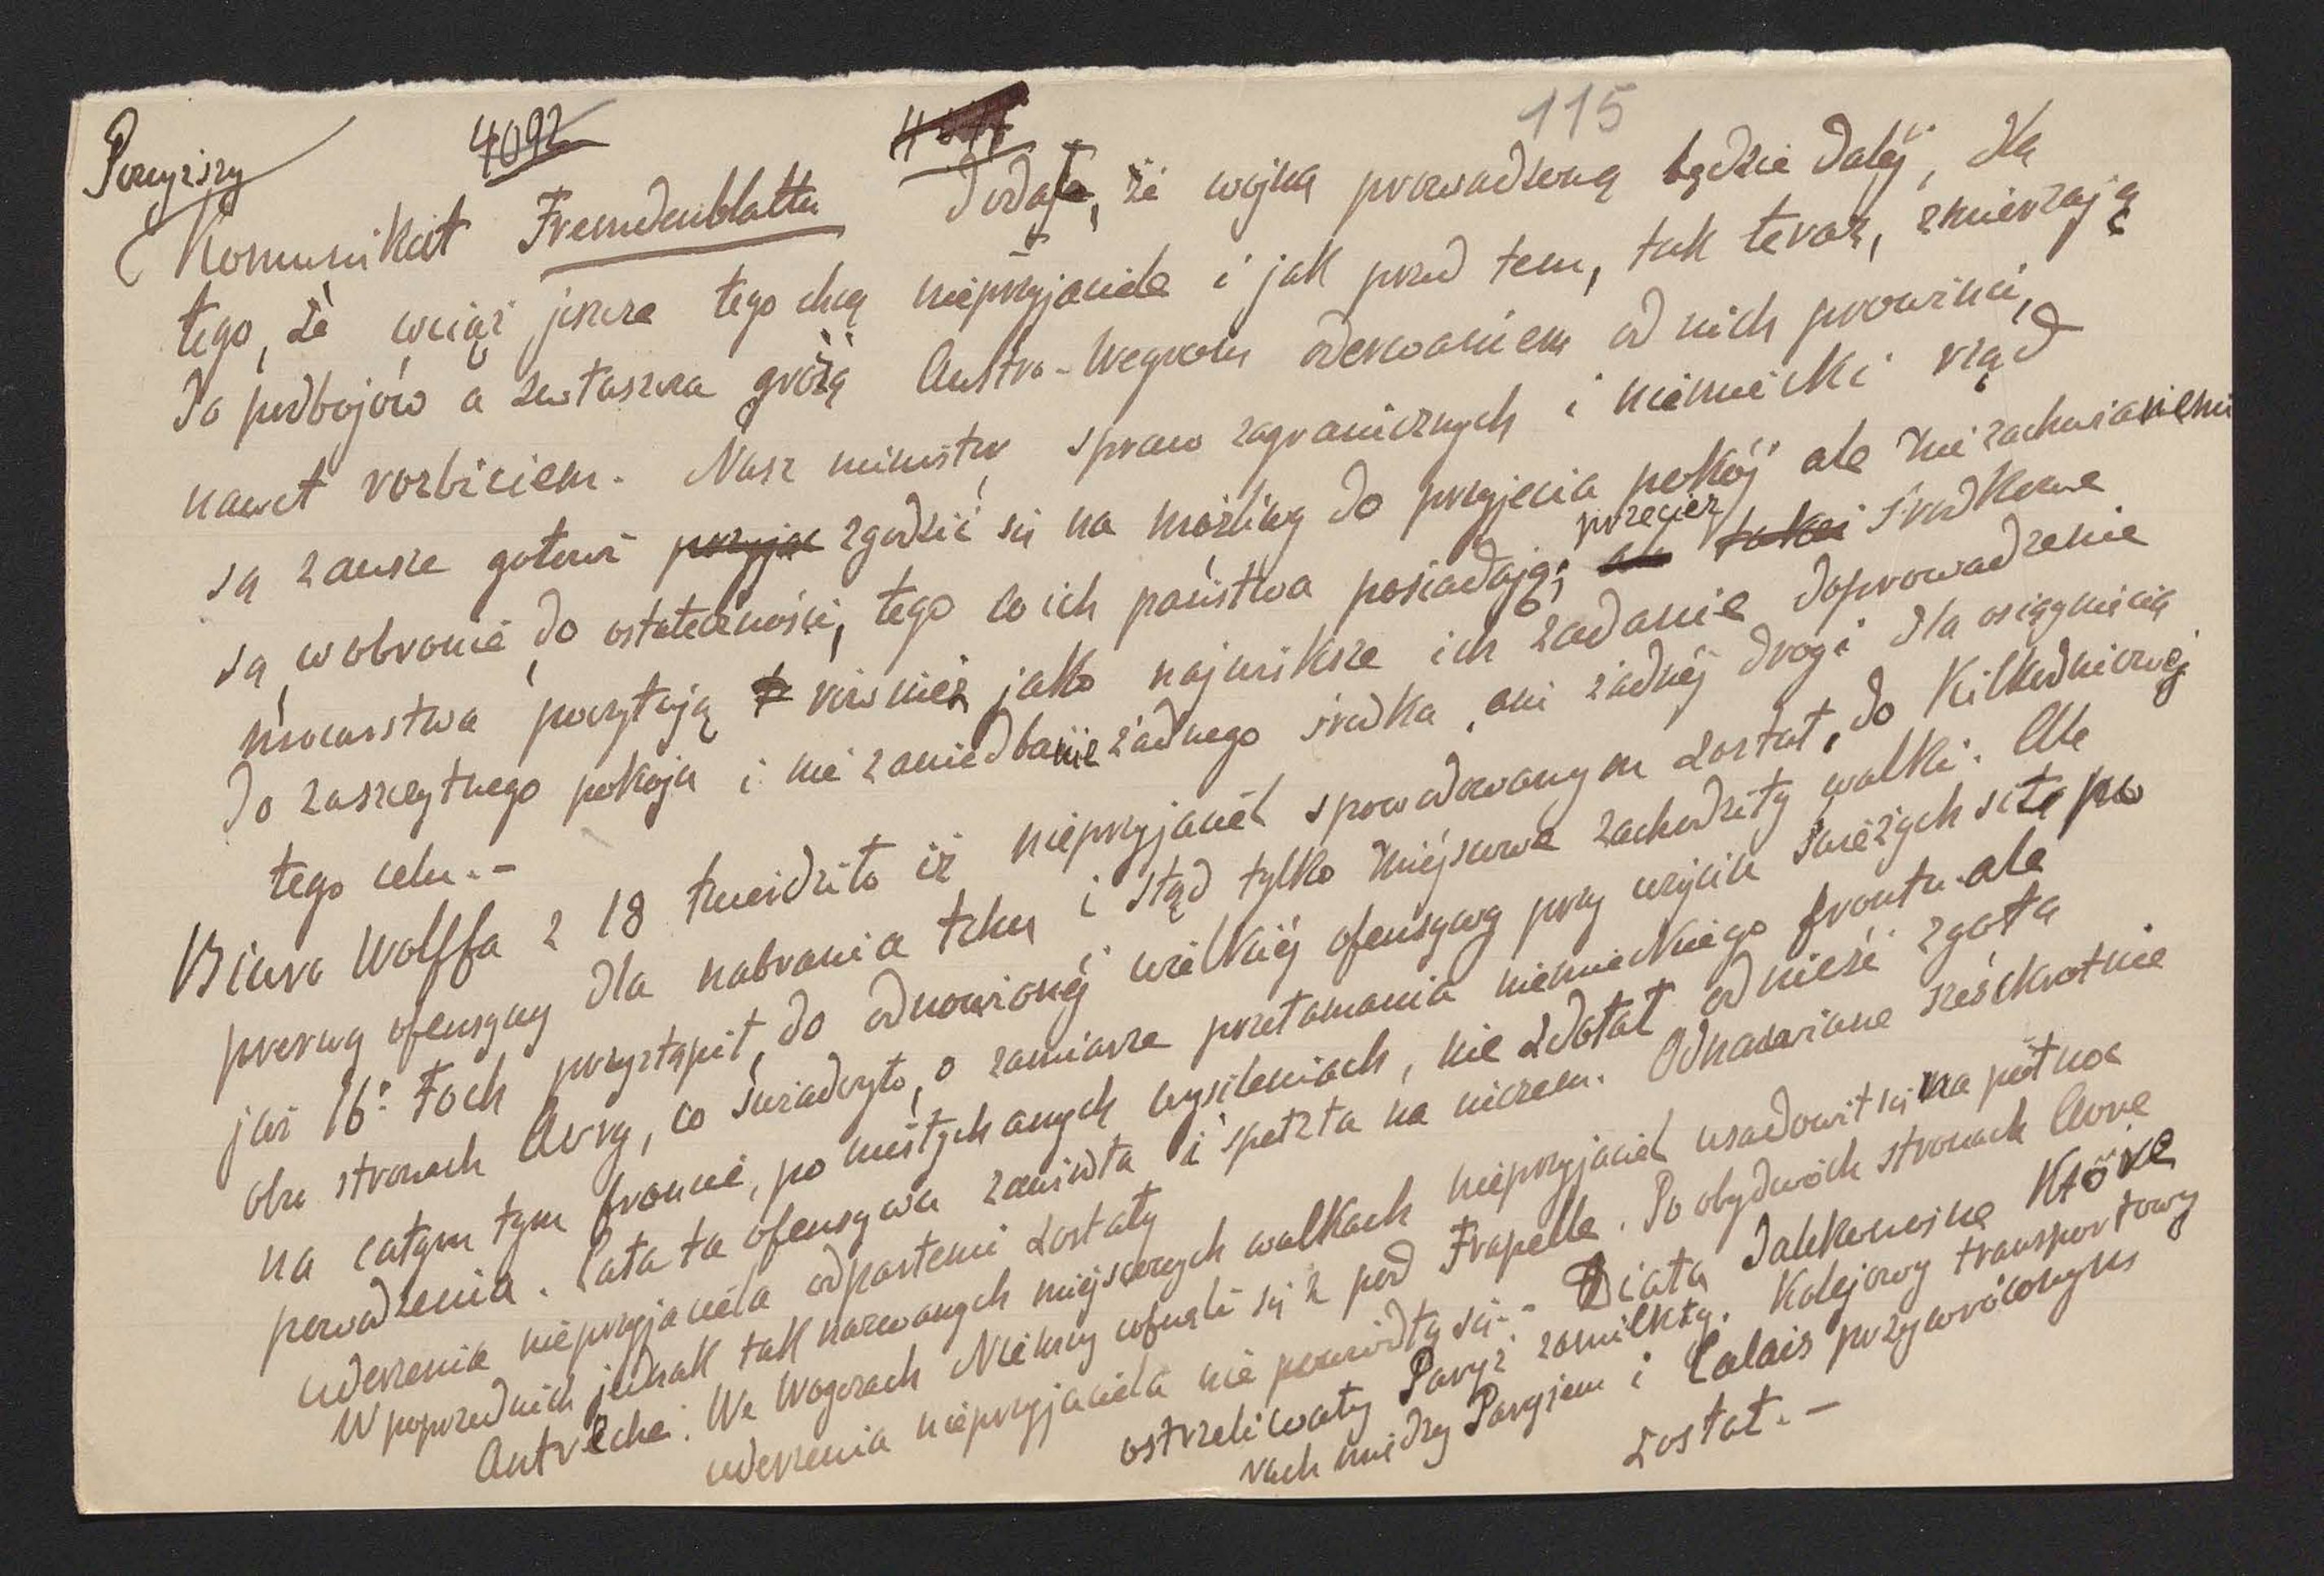 Powyższy 4092 115
Komunikat Fremdenblattu dodaje, że wojna prowadzoną będzie daléj, dla
tego, że wciąż jeszcze tego chcą nieprzyjaciele i jak przed tem, tak teraz, zmierzają
do podbojów a zwłaszcza grożą Austro-Węgrom oderwaniem od nich prowincji,
nawet rozbiciem. Nasz minister spraw zagranicznych i niemiecki rząd
są zawsze gotowi przyjąć zgodzić się na możliwy do przyjęcia pokój ale niezachwianemi
są w obronie do ostateczności, tego co ich państwa posiadają; przecież środkowe
mocarstwa poczytają również jako najwiksze ich zadanie doprowadzenie
do zaszczytnego pokoju i nie zaniedbanie żadnego środka, ani żadnéj drogi dla osiągnięcia
tego celu.-
Biuro Wolffa z 18 twierdziło iż nieprzyjaciel spowodowanym został, do kilkudniowéj
przerwy ofensywy dla nabrania tchu i stąd tylko miéjscowe zachodziły walki. Ale
już 16º Foch przystąpił, do odnowionéj wielkiéj ofensywy przy użyciu świeżych sił po
obu stronach Avry, co świadczyło, o zamiarze przełamania niemieckiego frontu ale
na całym tym froncie, po niesłychanych wysileniach, nie zdołał odnieść zgoła
powodzenia. Cała ta ofensywa zaniosła i spełzła na niczem. Odnawiane sześckrotnie
uderzenia nieprzyjaciela odpartemi zostały
W poprzednich jednak tak nazwanych miejscowych walkach nieprzyjaciel usadowił się na północ
Autrèche. We Wogezach Niemcy cofnęli się z pod Frapelle. Po obydwóch stronach Avre
uderzenia nieprzyjaciela nie powiodły się.- Działa dalekonośne które
ostrzeliwały Paryż zamilkły. Kolejowy transportowy
ruch między Paryżem i Calais przywróconym
został.-